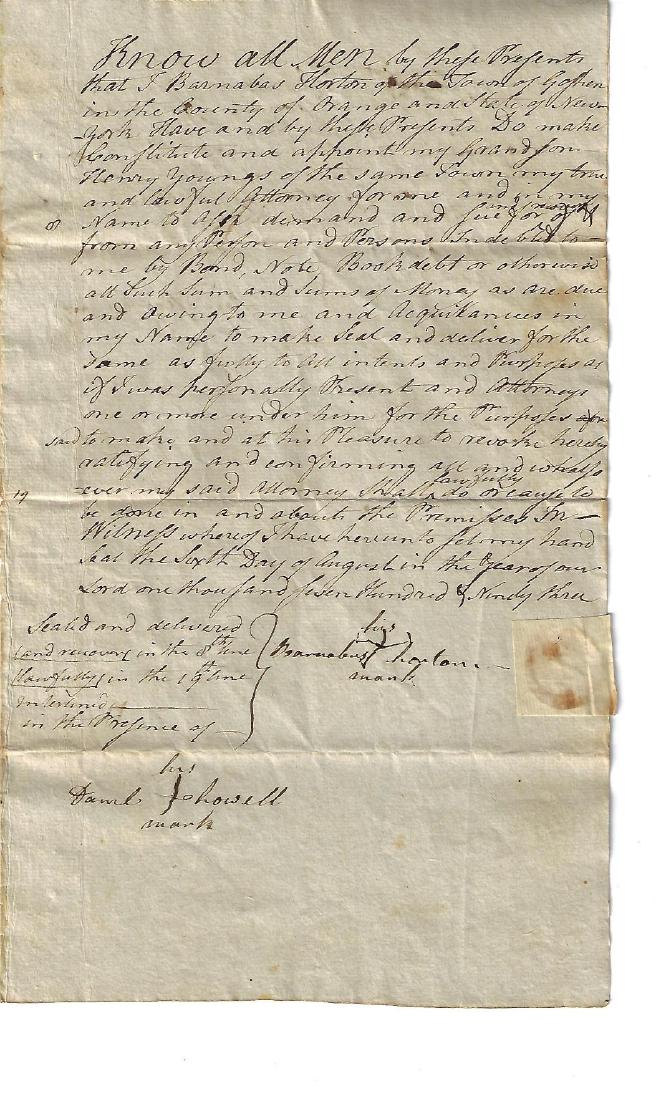 Know all Men by these Presents
that I Barnabas Horton of the Town of Goshen
in the County of Orange and State of New-
-York Have and by these Presents Do make
Constitute and appoint my Grandson
Henry Youngs of the same Town my true
and lawful Attorney for me and in my
and recover
Name to ask demand and sue for of &
or
from any Person and Persons Indebted to
me by Bond, Note, Bookdebt or otherwise
all Such Sum and Sums of Money as are due
and owing to me and Acquittances in
my Name to make Seal and deliver for the
same as fully to all intents and Purposes as
if I was personally Present and Attorneys
one or more under him for the Purposes
said to make and at his Pleasure to revoke hereby
ratifying and confirming all and whatso
lawfully
19 -ever my said Attorney Shall do or cause to
be done in and about the Premisses In
Witness whereof I have hereunto set my hand
Seal the Sixth Day of August in the Year of our
Lord one thousand seven Hundred & Ninety three
Sealed and delivered
(and recover) in the 8th line
(lawfully) in the 19th line
Interlined
in the Presence of
his
Barnabas horton
mark
his
Daniel howell
mark